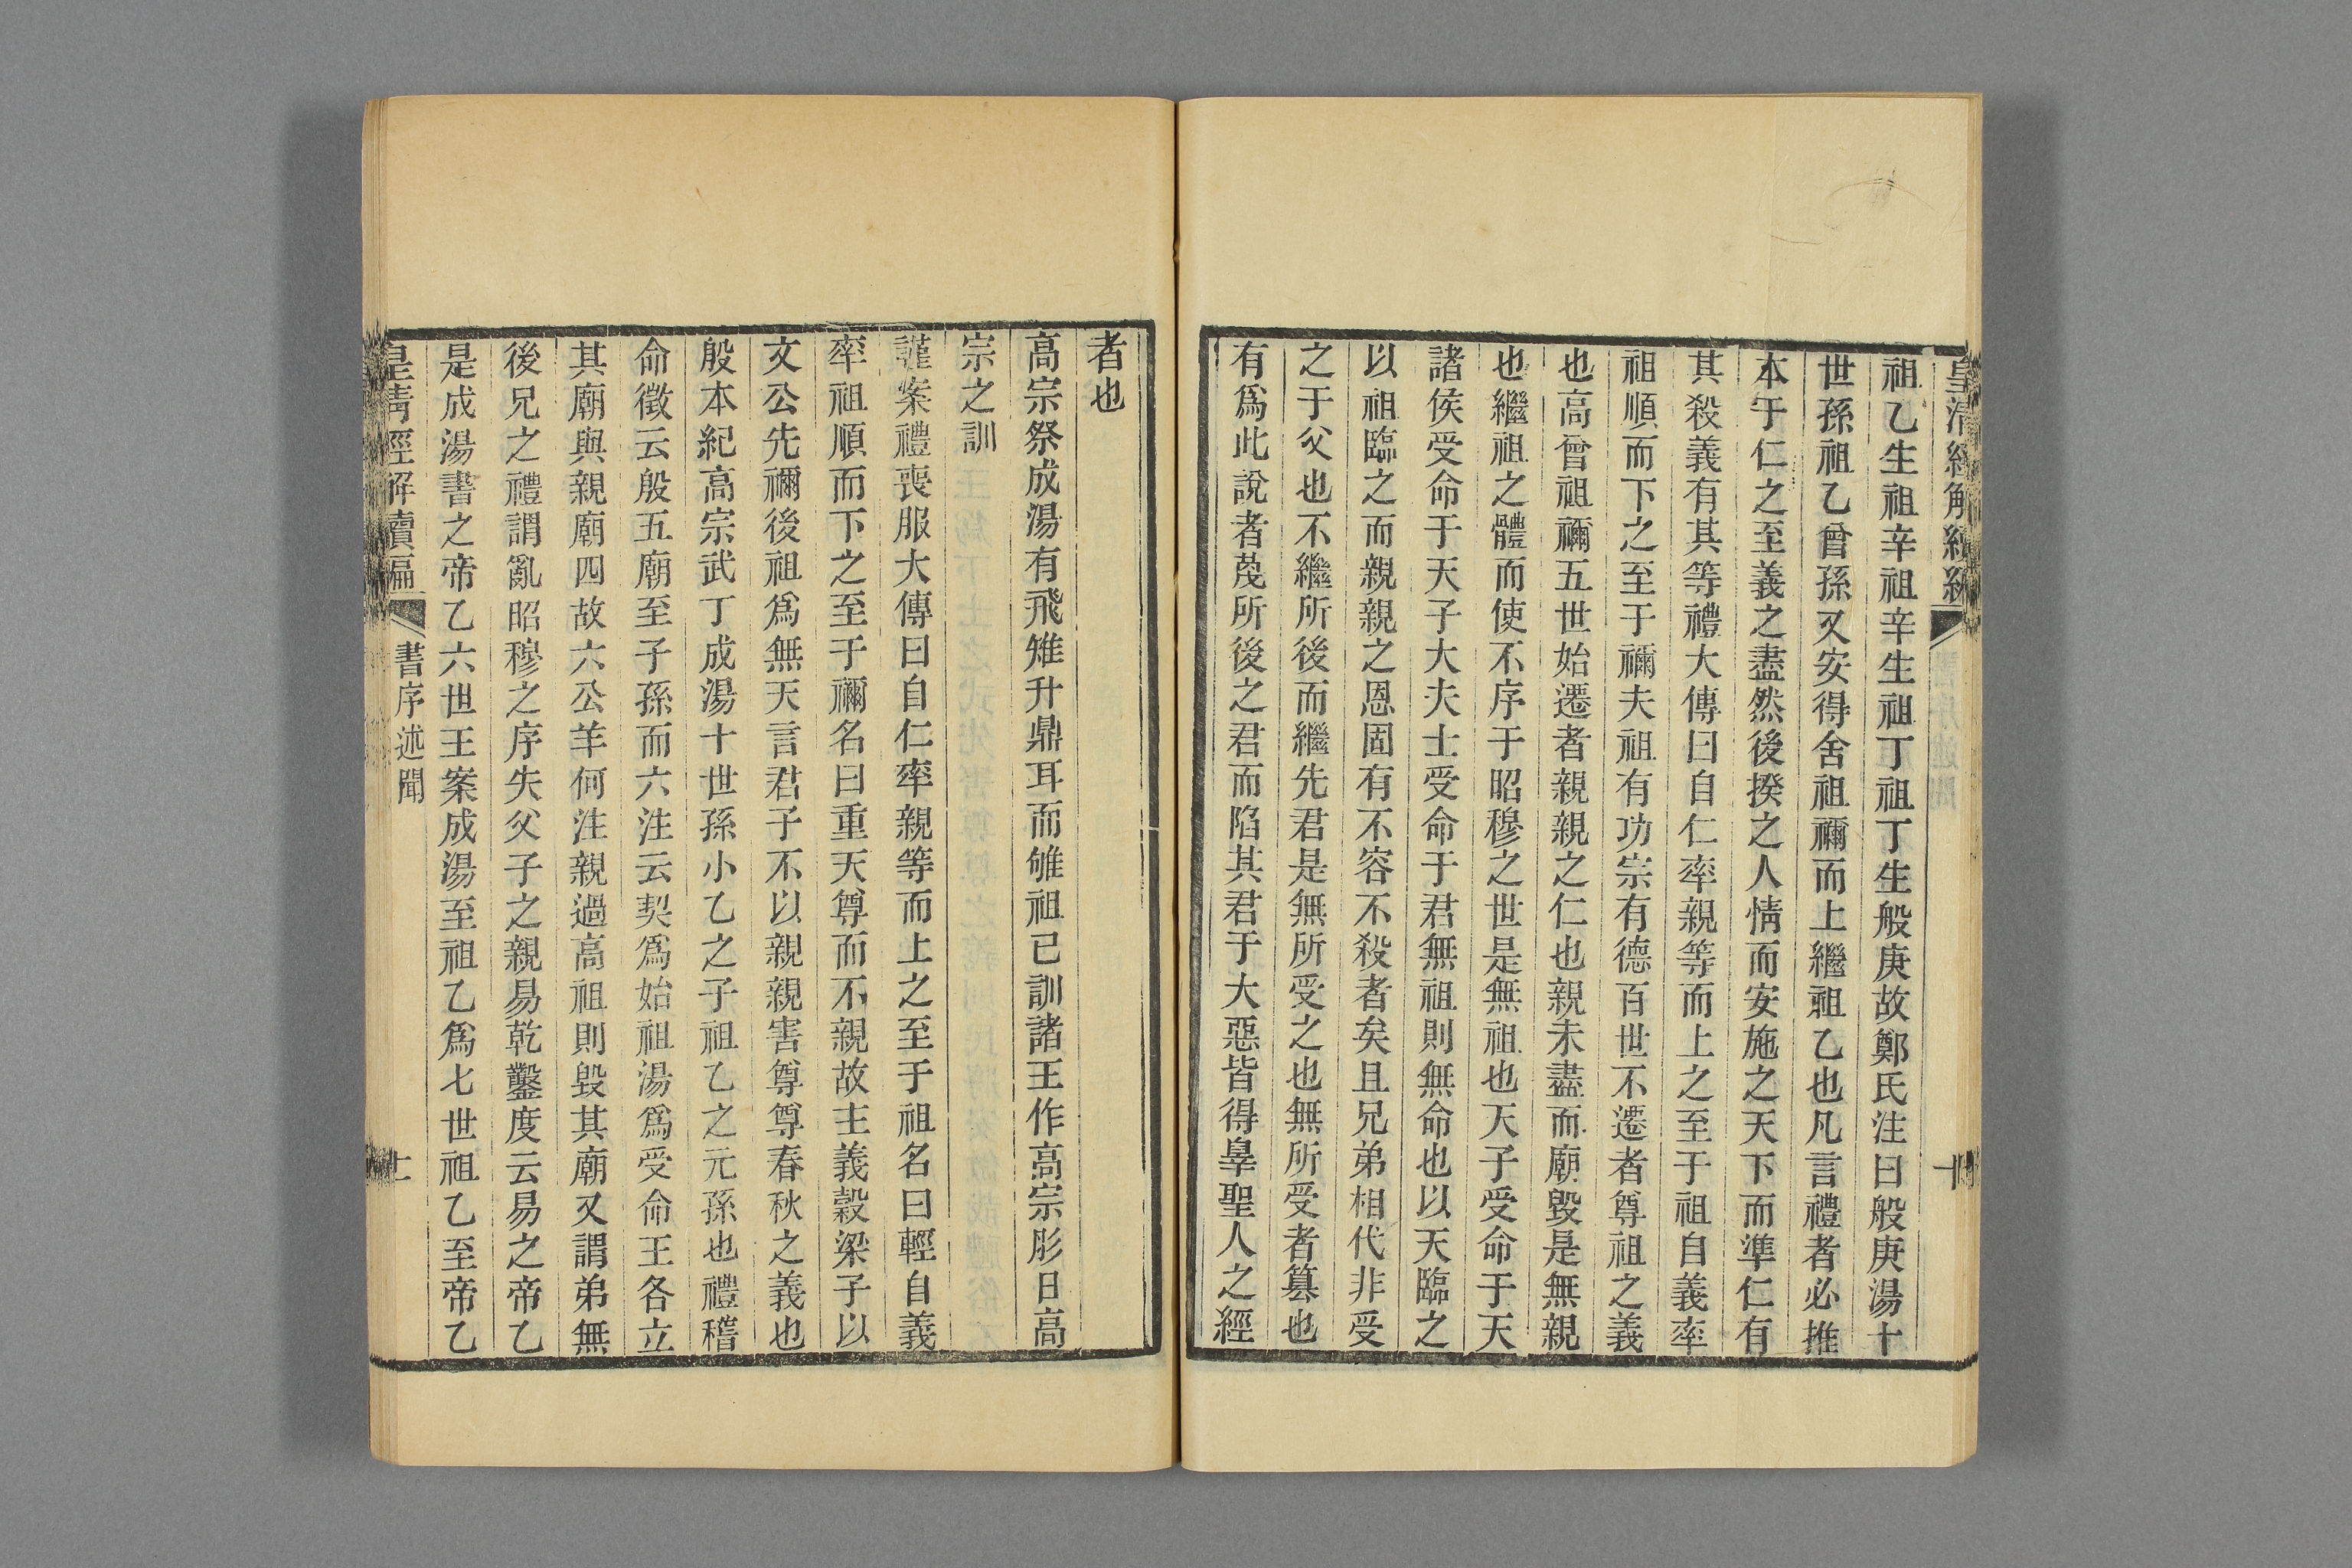 皇清經解續編
祖乙生祖辛祖辛生祖丁祖丁生般庚故鄭氏注曰般庚湯十
世孫祖乙曾孫又安得舍祖禰而上繼祖乙也凡言禮者必推
本于仁之至義之盡然後揆之人情而安施之天下而準仁有
其殺義有其等禮大傳曰自仁率親等而上之至于祖自義率
祖順而下之至于禰夫祖有功宗有德百世不遷者尊祖之義
也高曾祖禰五世始遷者親親之仁也親未盡而廟毀是無親
也繼祖之體而使不序于昭穆之世是無祖也天子受命于天
諸侯受命于天子大夫士受命于君無祖則無命也以天臨之
以祖臨之而親親之恩固有不容不殺者矣且兄弟相代非受
之于父也不繼所後而繼先君是無所受之也無所受者篡也
有爲此說者蔑所後之君而陷其君于大惡皆得辠聖人之經
者也
高宗祭成湯有飛雉升鼎耳而雊祖已訓諸王作高宗肜日高
宗之訓
謹案禮喪服大傳曰自仁率親等而上之至于祖名曰輕自義
率祖順而下之至于禰名曰重天尊而不親故主義穀梁子以
文公先禰後祖爲無天言君子不以親親害尊尊春秋之義也
般本紀高宗武丁成湯十世孫小乙之子祖乙之元孫也禮稽
命徵云殷五廟至子孫而六注云契爲始祖湯爲受命王各立
其廟與親廟四故六公羊何注親過高祖則毀其廟又謂弟無
後兄之禮謂亂昭穆之序失父子之親易乾鑿度云易之帝乙
是成湯書之帝乙六世王案成湯至祖乙爲七世祖乙至帝乙
皇清經解續編
書序述聞